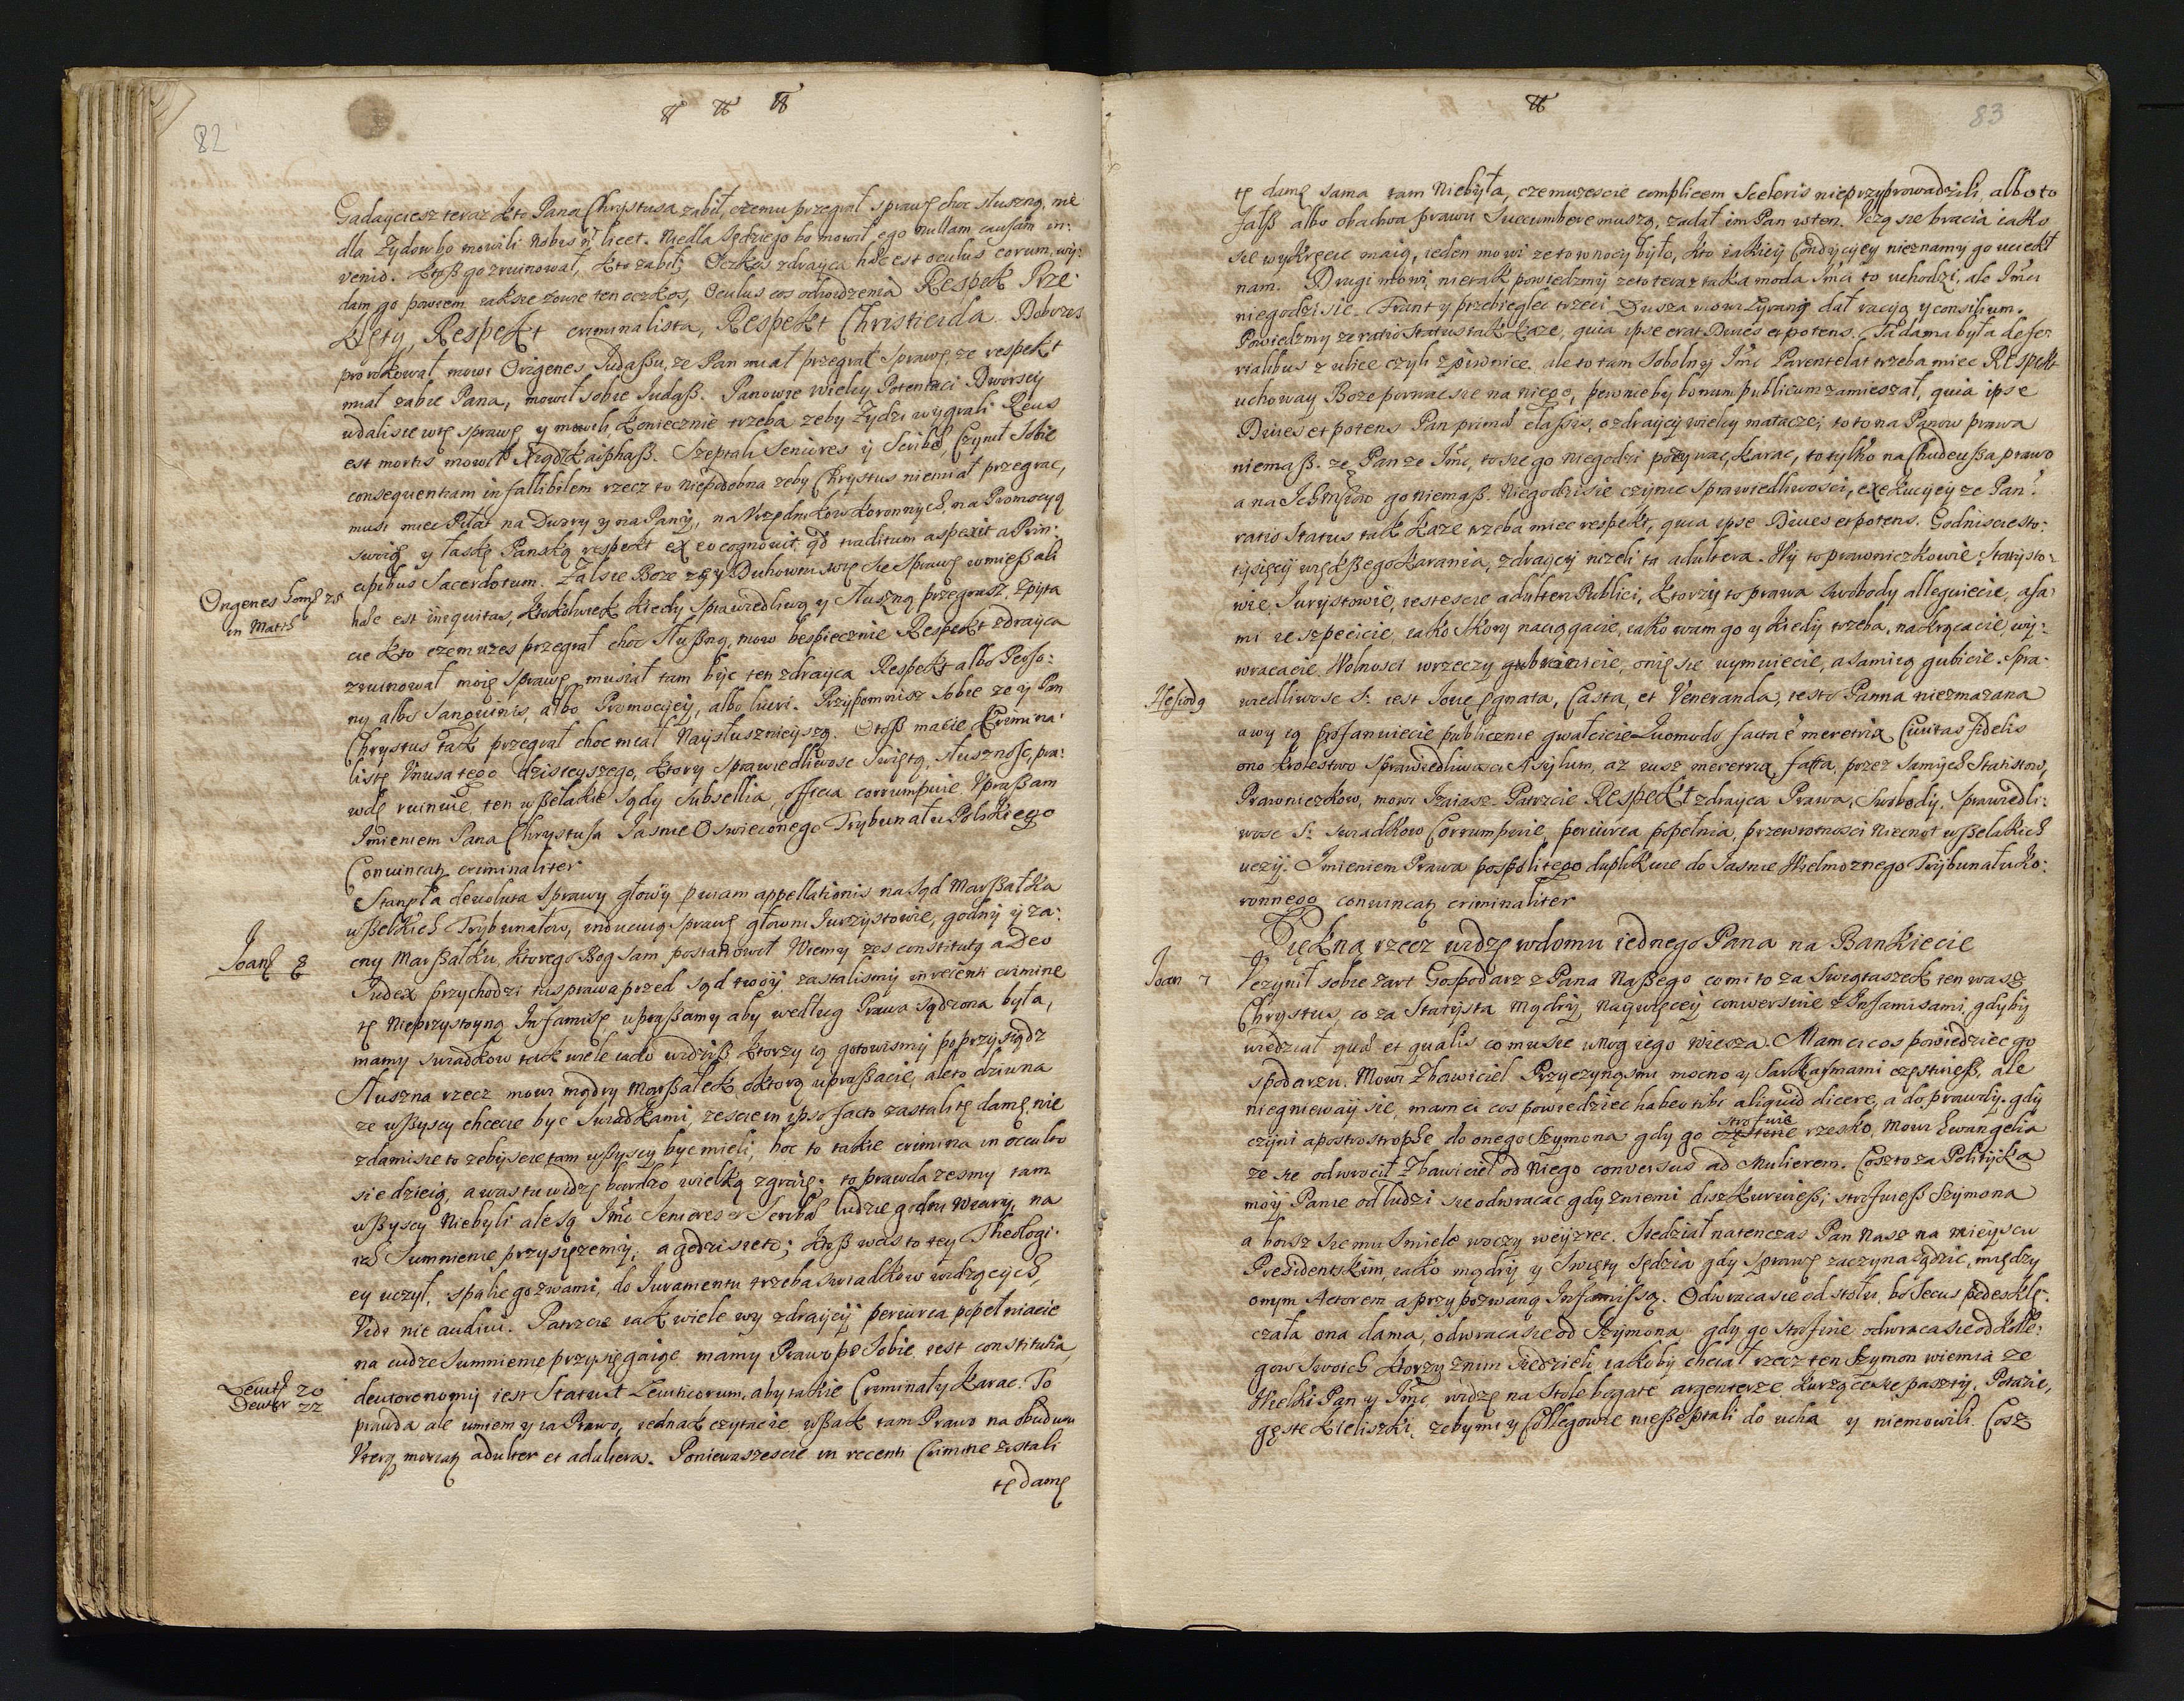 82
Gadaycież teraz kto Pana Chrystusa zabił, czemu przegrał sprawę choc słuszną, nie
dla Żydow bo mowili nobis non licet. Nie dla sędziego bo mowił ego nullam causam in:
venio. Ktoß go zruinował, kto zabił; Oczkos zdrayca hic est oculus eorum, wy:
dam go powiem iak sie zowie ten oczkos, Oculus cos od widzenia Respekt Prze
klęty, Respekt criminalista, Respekt Christicida. Dobrzes
prorokował mowi Origenes Judaßu, że Pan miał przegrać sprawę, że respekt
miał zabic Pana, mowił sobie Judaß. Panowie wielcy Potentaci Dworscy
udali sie w tę sprawę y mowili koniecznie trzeba żeby Żydzi wygrali Reus
est mortis mowił Kaiphaß. Szeptali Seniores y Scribæ, Czynił sobie
consequentiam infallibilem rzecz to niepodobna żeby Chrystus niemiał przegrac,
musi miec Piłat na Dwory y na Pany, na Urzędnikow koronnych, na Promocyą
swoię y łaskę Panską respekt ex eo cognovit quod traditum aspexit a Prin:
cipibus Sacerdotum. Żal sie Boże że y Duhowni w tę sie sprawę wmießali
Origenes hom: 25
in Matth
hæc est iniquitas, ktokolwiek kiedy sprawiedliwą y słuszną przegrasz, spyta
cie kto czemużes przegrał choc słußną, mow bespiecznie Respekt zdrayca
zruinował moię sprawę, musiał tam byc ten zdrayca Respekt albo Perso:
ny albo Sanguinis, albo Promocyey, albo lucri. Przypomnisz sobie że y Pan
Chrystus tak przegrał choc miał naysłusznieyszą. Otoß macie Krimina:
listę dzisieyszego, ktory sprawiedliwosc swiętą, słusznosc, pra:
wdę ruinuie, ten wßelakie sądy Subsellia, officia corrumpuie. Upraßam
Imieniem Pana Chrystusa Jasnie Oswieconego Trybunału Polskiego
Convincatur criminaliter
Stanęła devoluta sprawy głowy per viam appellationis na sąd Marßałka
wßelkich Trybunałow, inducuią sprawę głowni Jurzystowie, godny y za:
Joan: 8
cny Marßałku, ktorego Bog sam postanowił Wiemy żes constitutus a Deo
Judex przychodzi tu sprawa przed sąd twoy, zastalismy in recenti crimine
tę nieprzystoyną Infamisę upraßamy aby według Prawa sądzona była,
mamy swiadkow tack wiele iako widziß ktorzy są gotowismy poprzysiądz
Słuszna rzecz mowi mądry Marßałek o ktorą upraßacie, ale to dziwna
że wßyscy chcecie byc swiadkami, żescie in ipso facto zastali tę damę nie
zda mi sie to żebyscie tam wßyscy byc mieli, boc to takie crimina in occulto
sie dzieią, a was tu widzę bardzo wielką zgraię. to prawda żesmy tam
wßyscy niebyli ale są Imc Seniores et Scribæ ludzie godni wiary, na
ich Sumnienie przysiężemy, a godzi sie to; ktoß was to tey Theologi:
ey uczył, spalic go z wami, do Juramentu trzeba swiadkow widzących,
Vidi nie audivi. Patrzcie iak wiele wy zdraycy periuria popełniacie
na cudze Sumnienie przysięgaiąc mamy Prawo po sobie iest constitutia
Levit: 20
Deuter 22
deutoronomy iest Statut Leviticorum, aby takie Criminały karac. To
prawda ale umiem y ia Prawo, iednak czytacie wßak tam Prawo na obudwu
Uterque moriatur adulter et adultera. Poniewaszescie in recenti Crimine zastali
tę damę
83
tę damę sama tam niebyła, czemużescie complicem Sceleris nieprzyprowadzili, albo to
falß albo obadwa prawu Succumbere muszą, zadał im Pan wten. Uczą sie bracia iako
sie wykręcic maią, ieden mowi że to w nocy było, kto iakiey Condycyey nieznamy go uciekł
nam. Drugi mowi, nie tak powiedzmy że to teraz taka moda Imci to uchodzi, ale Imci
niegodzi sie. Frant y przebieglec trzeci Dusza mowi Zyranij dał racyą y consilium.
Powiedzmy że ratio status tak każe, quia ipse erat Dives et potens. Ta dama była de
z ulice czyli z piwnice, ale to tam Imc Parentelat trzeba miec Respekt
uchoway Boże porwac sie na niego, pewnieby bonum publicum zamieszał, quia ipse
Dives et potens Pan primæ classis, o zdraycy wielcy matacze; to to na Panow prawa
niemaß. że Pan że Imc, to sie go niegodzi pozywac, karac, to tylko na Chudeußa prawo
a na go niemaß. Niegodzi sie czynic sprawiedliwosci, exekucyey że Pan.
ratio Status tak każe trzeba miec respekt, quia ipse Dives et potens. Godniscie sto:
tysięcy więkßego karania, zdraycy niżeli ta adultera. Wy to prawniczkowie, Statysto:
wie, Jurystowie, iestescie adulteri Publici, ktorzy to prawa swobody alleguiecie, a sa:
mi ie szpecicie, iako skory naciągacie, iako wam go y kiedy trzeba, nakręcacie, wy:
wracacie Wolnosci w rzeczy gubicie, o nię sie uymuiecie, a sami ią gubicie. Spra:
Hesiod9
wiedliwosc S: iest Jove Cgnata, Casta, et Veneranda, iest to Panna niezmazana
a wy ią profanuiecie publicznie gwałcicie Quomodo facta est meretrix Civitas fidelis
ono krolestwo sprawiedliwosci Asylum, aż iusz meretrix facta, przez samych Statistow,
Prawniczkow, mowi Izaiasz. Patrzcie Respekt zdrayca Prawa, Swobody, sprawiedli:
wosc S: swiadkow Corrumpuie, periuria popełnia, przewrotnosci niecnot wßelakich
uczy. Imieniem Prawa pospolitego duplikuie do Jasnie Wielmożnego Trybunału Ko:
ronnego convincatur criminaliter
Piękną rzecz widzę w domu iednego Pana na Bankiecie
Joan 7
Uczynił sobie żart Gospodarz z Pana Naßego co mi to za Swiętaszek ten wasz
Chrystus, co za Statysta mądry, naywięcey conwersuie z Infamisami, gdyby
wiedział quæ et qualis co mu sie u nog iego wiesza. Mam ci cos powiedziec go
spodarzu. Mowi Zbawiciel Przyczynąs mi mocno y Sarkasmami częstuieß, ale
niegnieway sie, mam ci cos powiedziec habeo tibi aliquid dicere, a do prawdy. gdy
czyni apostrostrophe do onego Szymona gdy go strofuie rzesko, mowi Ewangelia
że sie odwrocił Zbawiciel od niego conversus ad Mulierem. Coszto za Polityka
moy Panie od ludzi sie odwracac gdy z niemi diszkuruieß; strofuieß Szymona
a boisz sie mu smiele w oczy weyzrec. Siedział natenczas Pan Nasz na mieyscu
Presidentskim, iako mądry y Swięty sędzia gdy sprawę zaczyna sądzic, między
onym Actorem a przypozwaną Infamissą. Odwraca sie od stołu, bo secus pedes klę:
czała ona dama, odwraca sie od Szymona gdy go strofuie odwraca sie od Kolle:
gow swoich ktorzy z nim siedzieli, iakoby chciał rzecz ten Szymon wiemia że
Wielki Pan y Imc widzę na stole bogate argenterze kurzące sie paszty, Potazie,
gęste kieliszki, żeby mi y Collegowie nießeptali do ucha y niemowili. Cosz